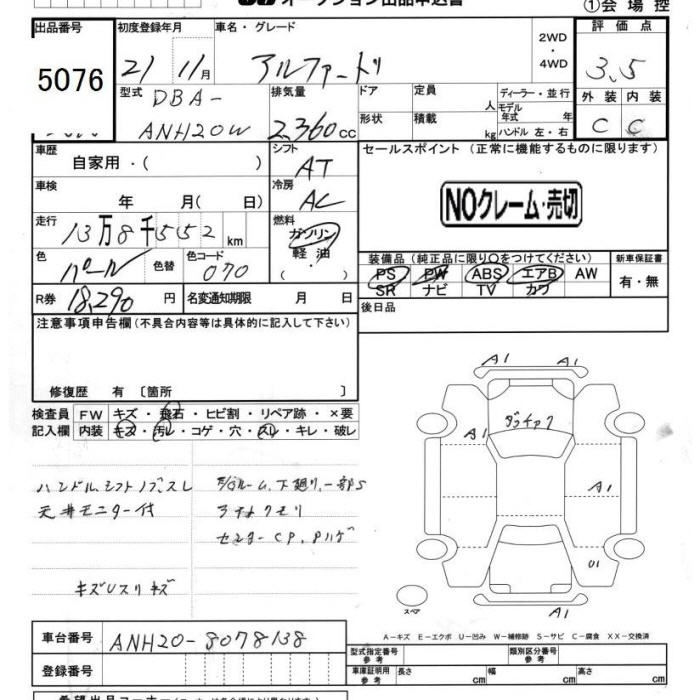 オークション出品申込書
①会場控
出品番号 初度登録年月 車名・グレード 2WD・4WD 評価点
5076 21 11月 アルファード 3.5
型式 DBA-ANH20W 排気量 2,360cc
ドア 定員 人 ディーラー・並行 外装 内装
形状 積載 kg モデル年式 年 ハンドル 左・右 C C
車歴 自家用・( ) シフト AT セールスポイント(正常に機能するものに限ります)
車検 年 月(日) 冷房 AC NOクレーム・売切
走行 13万8千552km 燃料 ガソリン 軽油 ・( )
色 パール 色替 色コード 070
装備品(純正品に限り○をつけてください) 新車保証書
PS PW ABS エアB AW 有・無
SR ナビ TV カワ
R券 18,290円 名変通知期限 月 日 後日品
注意事項申告欄(不具合内容等は具体的に記入して下さい)
修復歴 有 〔箇所 〕
検査員 FW キズ・飛石・ヒビ割・リペア跡・×要
記入欄 内装 キズ・汚レ・コゲ・穴・スレ・キレ・破レ
ハンドル、シフトノブ、スレ
天井モニター付
キズUスリキズ
下廻り、一部S
A1 A1
A1
A1
U1
A1
スペア
A-キズ E-エクボ U-凹み W-補修跡 S-サビ C-腐食 XX-交換済
車台番号 ANH20-8078138
型式指定番号 参考 類別区分番号 参考
登録番号 車庫証明用 参考 長さ cm 幅 cm 高さ cm